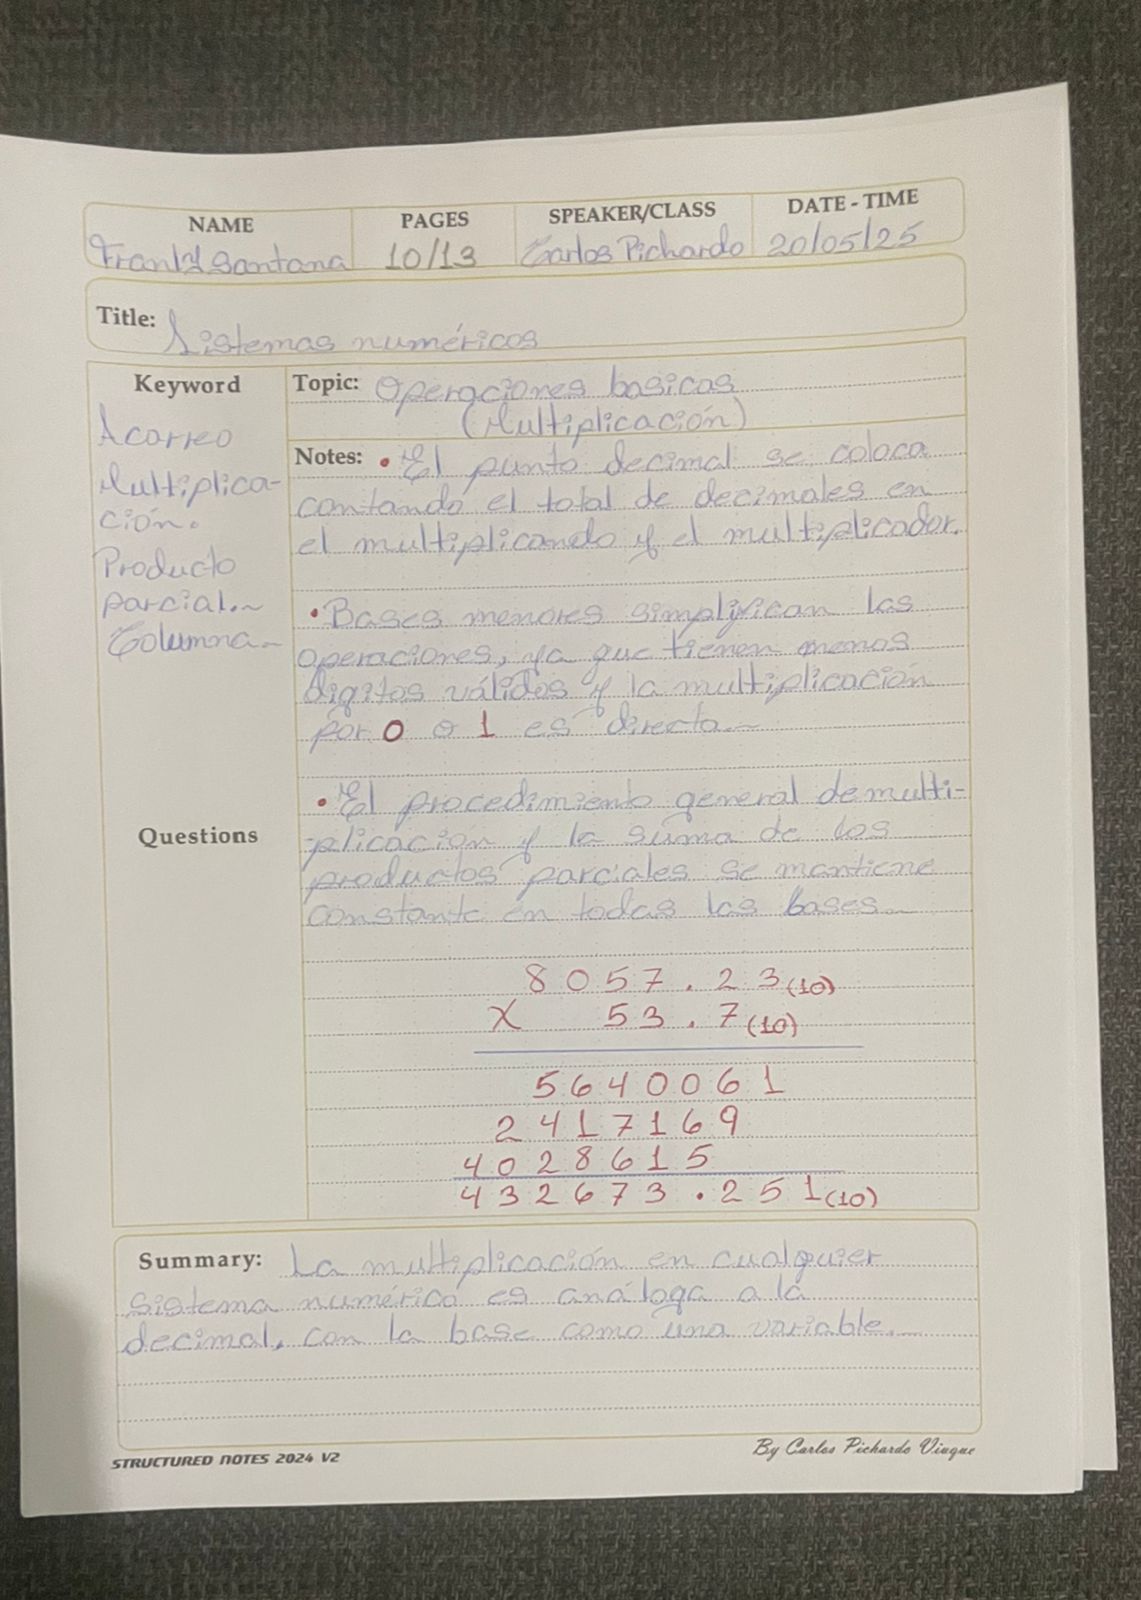 NAME PAGES SPEAKER/CLASS DATE - TIME
Frankl Santana 10/13 Carlos Pichardo 20/05/25
Title: Sistemas numéricos
Keyword
Acarreo
Multiplica-
ción.
Producto
parcial.~
Columna~
Questions
Topic: Operaciones basicas
(Multiplicación)
Notes: • El punto decimal se coloca
contando el total de decimales en
el multiplicando y el multiplicador.
• Bases menores simplifican las
operaciones, ya que tienen menos
digitos válidos y la multiplicación
por 0 o 1 es directa.~
• El procedimiento general de multi-
plicación y la suma de los
productos parciales se mantiene
constante en todas las bases.~
8057.23(10)
X 53.7(10)
5640061
2417169
4028615
432673.251(10)
Summary: La multiplicación en cualquier
sistema numérico es análoga a la
decimal, con la base como una variable.~
STRUCTURED NOTES 2024 V2
By Carlos Pichardo Viuque